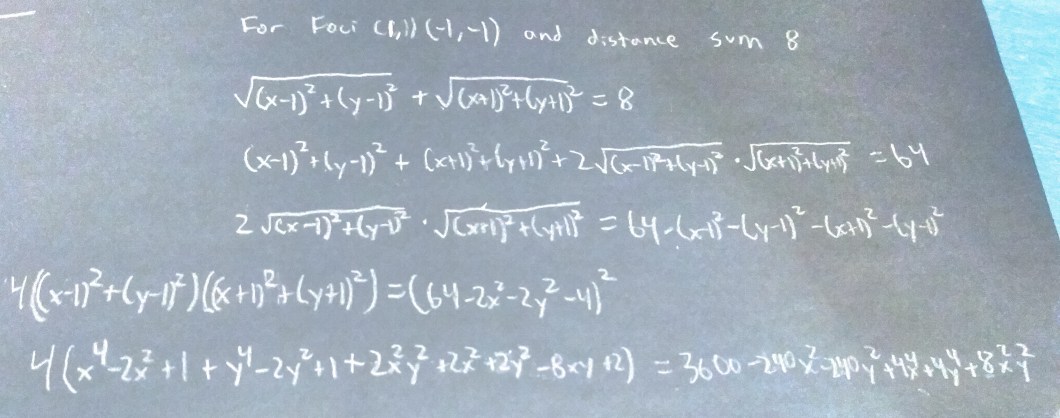 For Foci (1,1) (-1,-1) and distance sum 8
√(x-1)²+(y-1)² + √(x+1)²+(y+1)² = 8
(x-1)²+(y-1)² + (x+1)²+(y+1)²+2√(x-1)²+(y-1)² · √(x+1)²+(y+1)² = 64
2√(x-1)²+(y-1)² · √(x+1)²+(y+1)² = 64-(x-1)²-(y-1)²-(x+1)²-(y-1)²
4((x-1)²+(y-1)²)((x+1)²+(y+1)²) = (64-2x²-2y²-4)²
4(x⁴-2x²+1+y⁴-2y²+1+2x²y²+2x²+2y²-8xy+2) = 3600-240x²-240y²+4x⁴+4y⁴+8x²y²